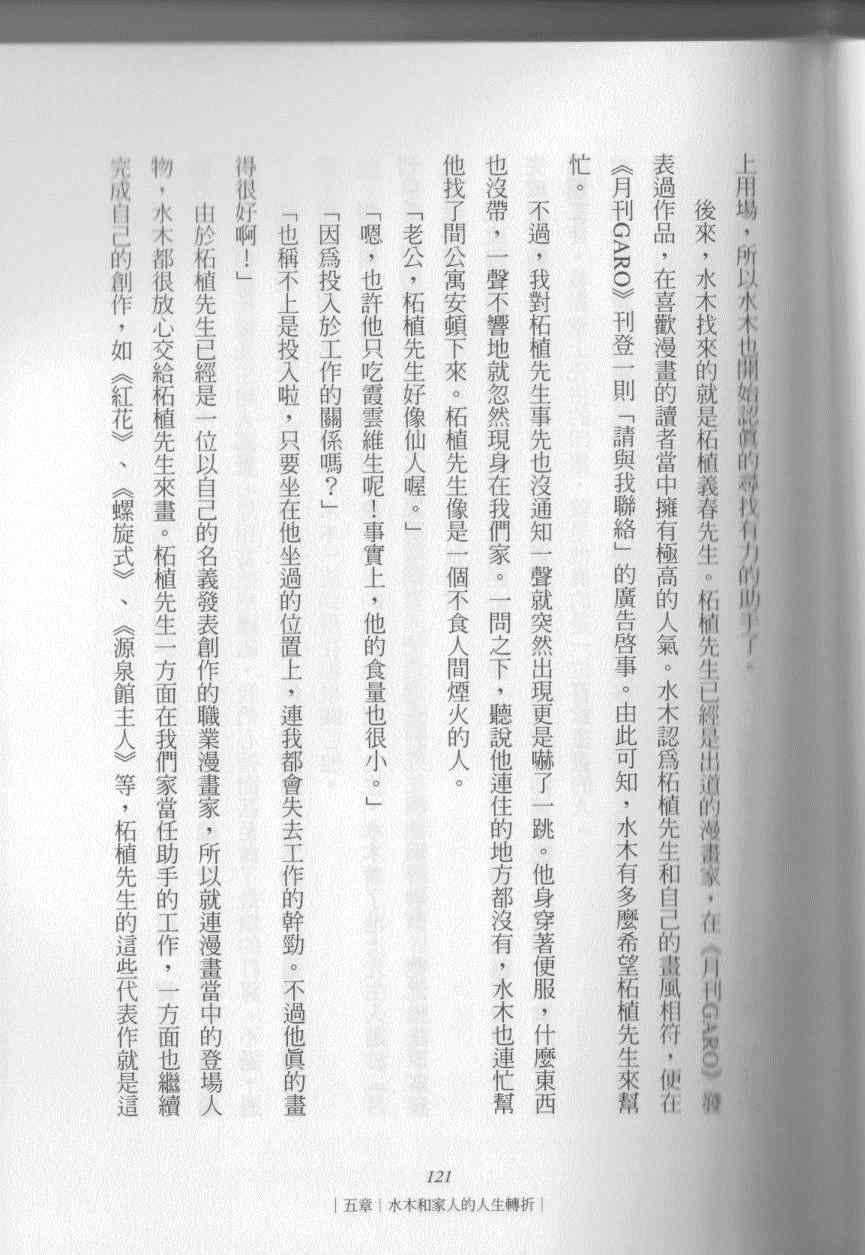 上用場，所以水木也開始認真的尋找有力的助手了。
後來，水木找來的就是柘植義春先生。柘植先生已經是出道的漫畫家，在《月刊GARO》發
表過作品，在喜歡漫畫的讀者當中擁有極高的人氣。水木認為柘植先生和自己的畫風相符，便在
《月刊GARO》刊登一則「請與我聯絡」的廣告啓事。由此可知，水木有多麼希望柘植先生來幫
忙。
不過，我對柘植先生事先也沒通知一聲就突然出現更是嚇了一跳。他身穿著便服，什麼東西
也沒帶，一聲不響地就忽然現身在我們家。一問之下，聽說他連住的地方都沒有，水木也連忙幫
他找了間公寓安頓下來。柘植先生像是一個不食人間煙火的人。
「老公，柘植先生好像仙人喔。」
「嗯，也許他只吃霞雲維生呢！事實上，他的食量也很小。」
「因為投入於工作的關係嗎？」
「也稱不上是投入啦，只要坐在他坐過的位置上，連我都會失去工作的幹勁。不過他真的畫
得很好啊！」
由於柘植先生已經是一位以自己的名義發表創作的職業漫畫家，所以就連漫畫當中的登場人
物，水木都很放心交給柘植先生來畫。柘植先生一方面在我們家當任助手的工作，一方面也繼續
完成自己的創作，如《紅花》、《螺旋式》、《源泉館主人》等，柘植先生的這些代表作就是這
121
｜五章｜水木和家人的人生轉折｜